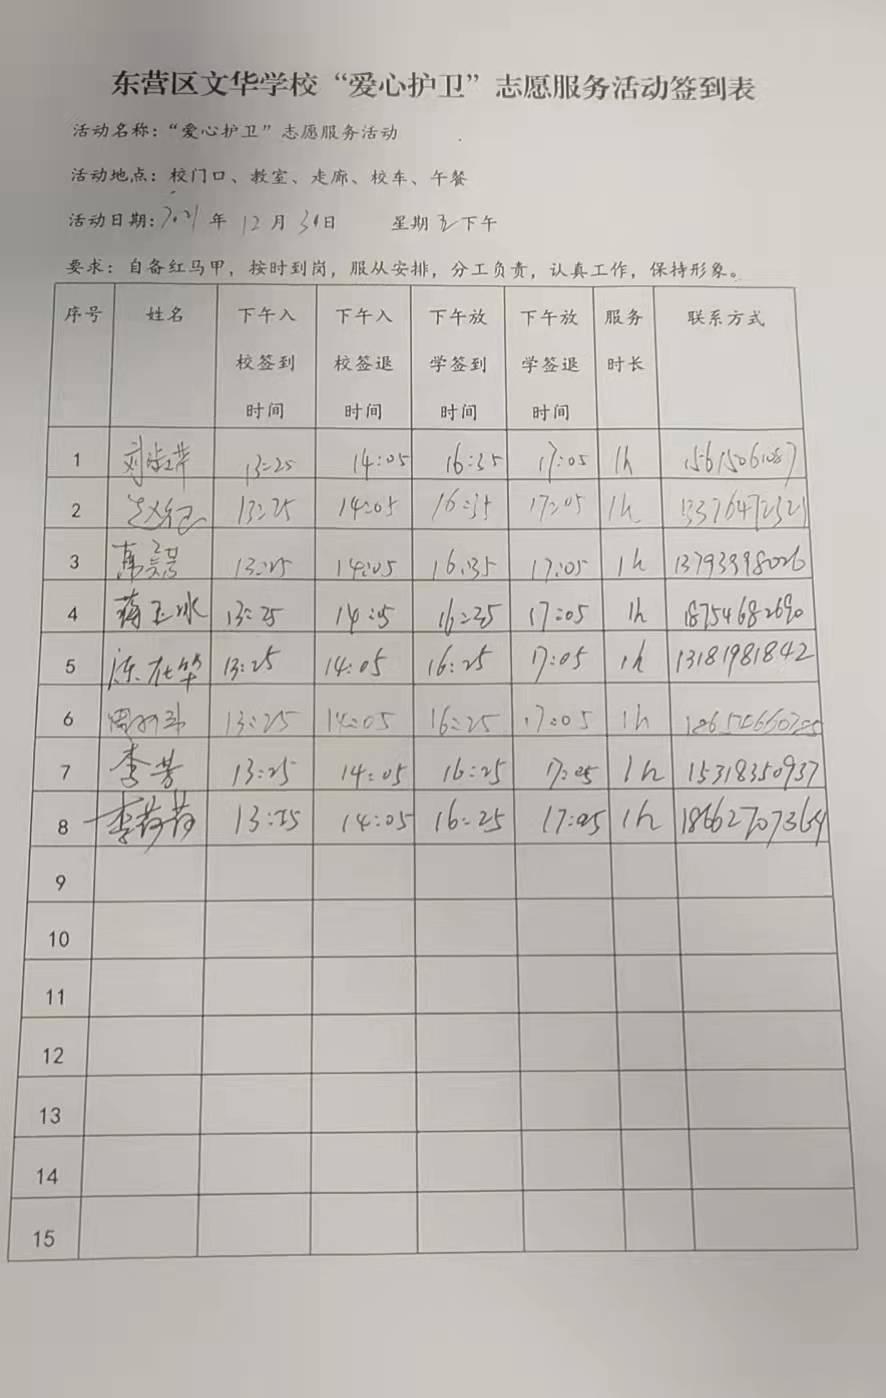 东营区文华学校“爱心护卫”志愿服务活动签到表
活动名称：“爱心护卫”志愿服务活动
活动地点：校门口、教室、走廊、校车、午餐
活动日期：2021年12月31日 星期五下午
要求：自备红马甲，按时到岗，服从安排，分工负责，认真工作，保持形象。
序号 姓名 下午入校签到时间 下午入校签退时间 下午放学签到时间 下午放学签退时间 服务时长 联系方式
1 13:25 14:05 16:35 17:05 1h
2 13:25 14:05 16:35 17:05 1h
3 13:25 14:05 16:35 17:05 1h 13793398026
4 蒋玉冰 13:25 14:05 16:35 17:05 1h 18754682690
5 陈在华 13:25 14:05 16:25 17:05 1h 13181981842
6 13:25 14:05 16:25 17:05 1h
7 李芳 13:25 14:05 16:25 17:05 1h 15318350937
8 李荷荷 13:25 14:05 16:25 17:05 1h 18662707364
9
10
11
12
13
14
15